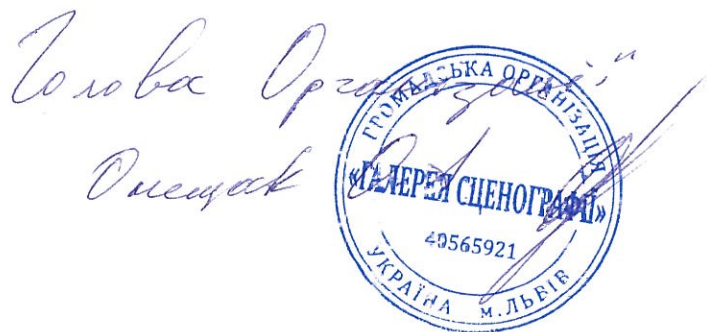 Голова Організації
ГРОМАДСЬКА ОРГАНІЗАЦІЯ
«ГАЛЕРЕЯ СЦЕНОГРАФІЇ»
40565921
УКРАЇНА м.ЛЬВІВ